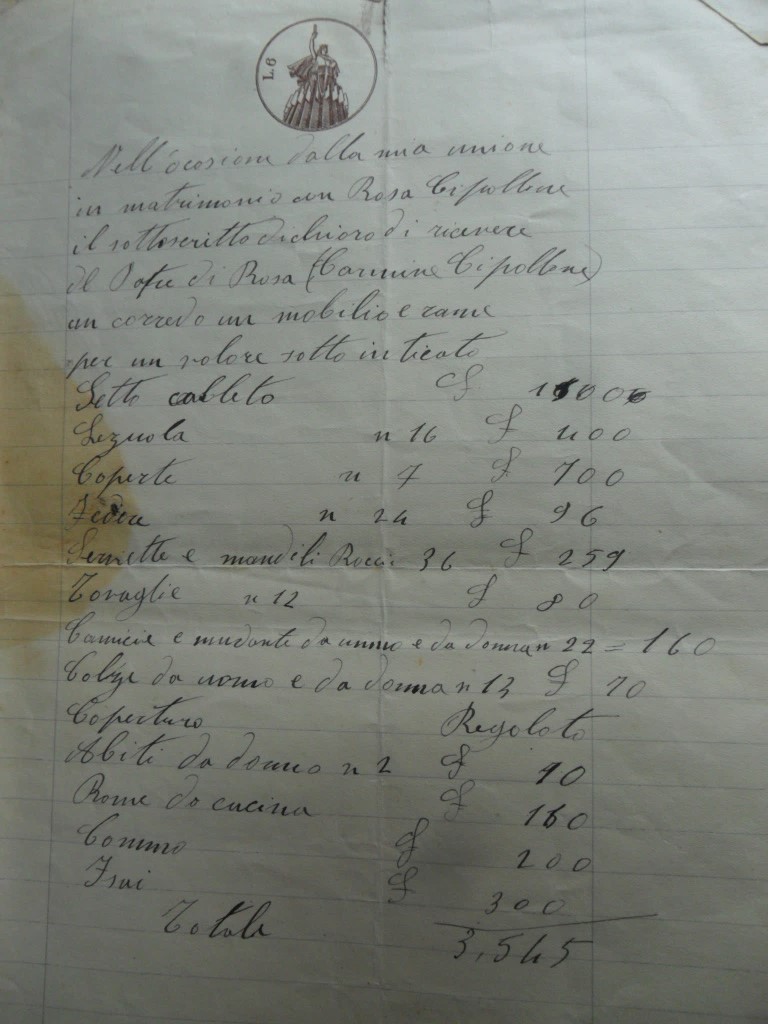 L.6
Nell'ocasione dalla mia unione
in matrimonio con Rosa Cipollone
il sottoscritto dichiaro di ricevere
dl Patre di Rosa (Carmine Cipollone)
un corredo un mobilio e rame
per un valore sotto inticato
Letto £
Lezuola n 16 £ 400
Coperte n 7 £ 700
Federe n 24 £ 96
Serviette e mandili 36 £ 259
Tovaglie n 12 £ 80
Camicie e mudante da uomo e da donna n 22 = 160
Calze da uomo e da donna n 13 £ 70
Coperturo Regolato
Abiti da donna n 2 £ 90
Rome da cucina £ 160
Commo £ 200
£ 300
Totale 3,545